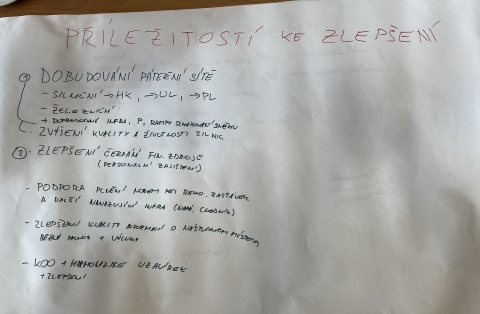 PŘÍLEŽITOSTÍ KE ZLEPŠENÍ
1 DOBUDOVÁNÍ PÁTEŘNÍ SÍTĚ
- SILNIČNÍ → HK, → UL, → PL
- ŽELEZNIČNÍ
+ DOPROVODNÍ INFRA, P,
ZVÝŠENÍ KVALITY A ŽIVOTNOSTI SILNIC
2 ZLEPŠENÍ ČERPÁNÍ FIN. ZDROJŮ
(PERSONÁLNÍ ZAJIŠTĚNÍ)
- PODPORA PLNĚNÍ NOREM PŘI REKO. ZASTÁVEK
A DALŠÍ NAVAZUJÍCÍ INFRA
- ZLEPŠENÍ KVALITY INFORMACÍ O
BĚŽNÝ PROVOZ + VÝLUKY
- KOO + HARMONIZACE UZAVÍREK
+ ZLEPŠENÍ